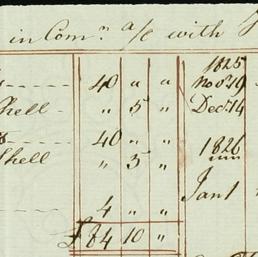 in Comn a/c with
40 " " 1825
Novr 19
Shell " 5 " Decr 14
40 " " 1826
Shell " 5 "
Jany 1
4 " "
£84 10 "